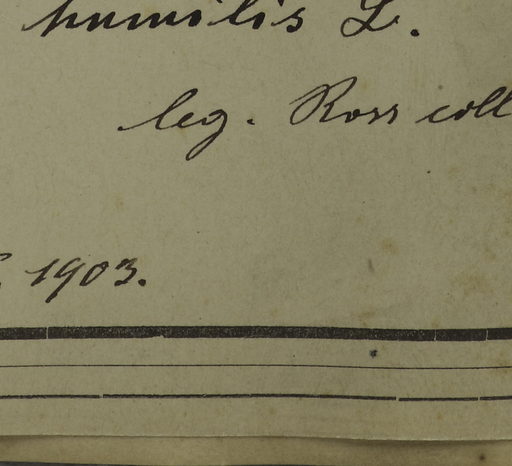 humilis L.
leg. Ross coll
1903.